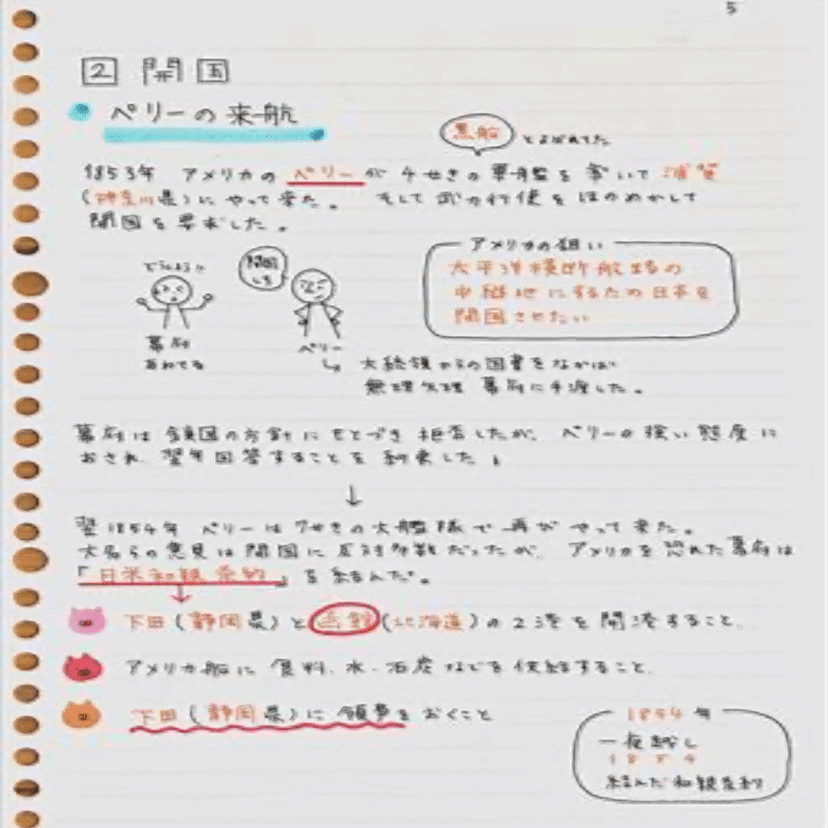 5
2 開国
ペリーの来航
黒船 とよばれてた
1853年 アメリカの ペリーが 4せきの軍艦を率いて 浦賀
(神奈川県)にやって来た。 そして武力行使をほのめかして
開国を要求した。
どうしよう!!
開国しろ
アメリカの狙い
太平洋横断航路の
中継地にするため日本を
開国させたい
幕府
あわてる
ペリー
大統領からの国書をなかば
無理矢理 幕府に手渡した。
幕府は鎖国の方針にもとづき拒否したが、ペリーの強い態度に
おされ 翌年回答することを約束した
翌1854年 ペリーは7せきの大艦隊で再びやって来た。
大名らの意見は開国に反対多数だったが、アメリカを恐れた幕府は
「日米和親条約」を結んだ。
下田(静岡県)と函館(北海道)の2港を開港すること、
アメリカ船に食料、水、石炭などを供給すること、
下田(静岡県)に領事をおくこと
1854年
一夜越し
1854
結んだ和親条約